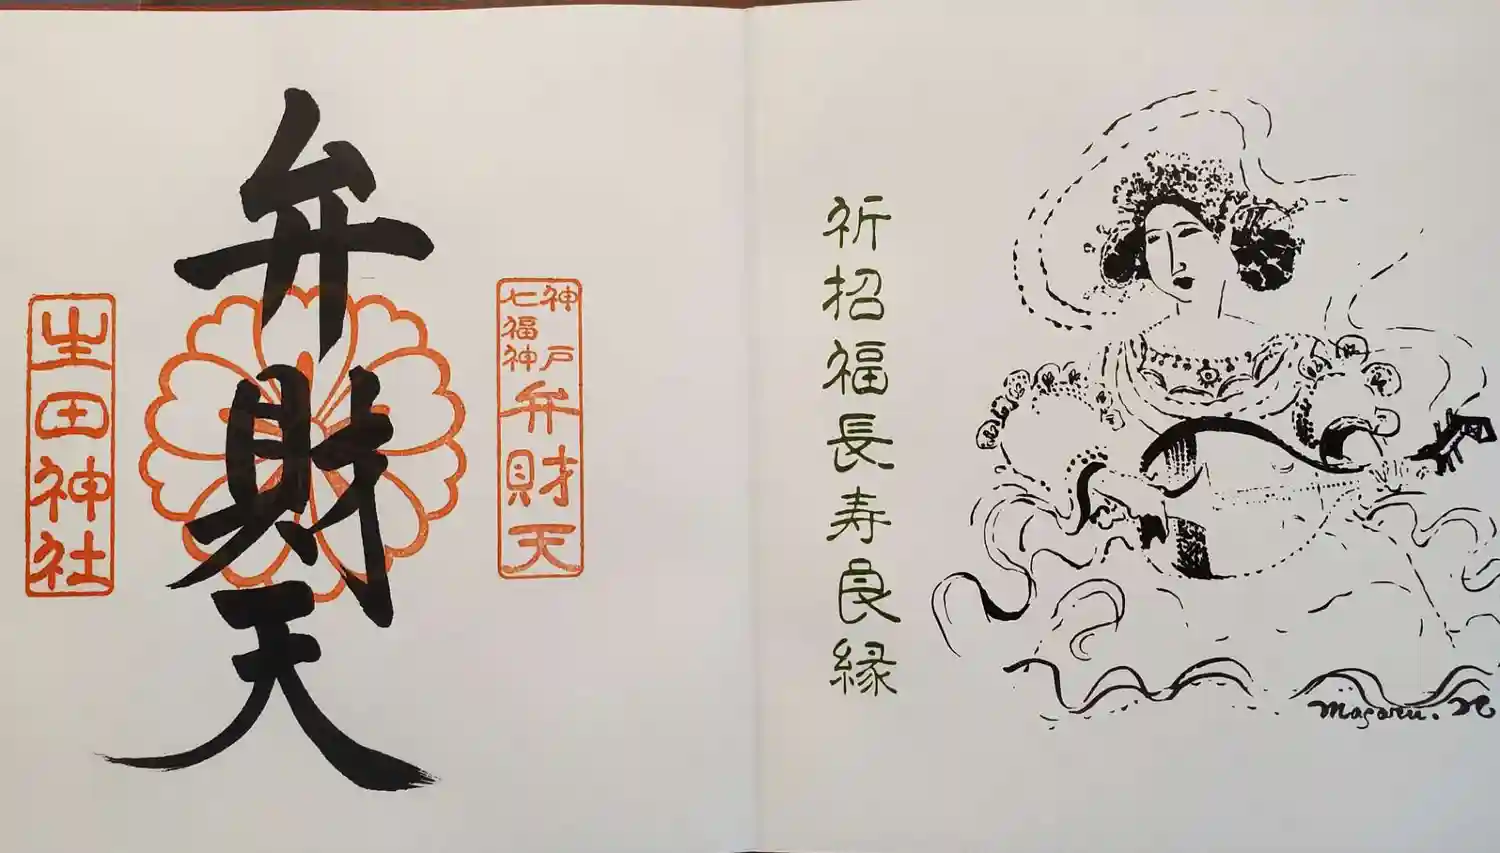 弁財天
神戸七福神
弁財天
生田神社
祈招福長寿良縁
Masaru. N